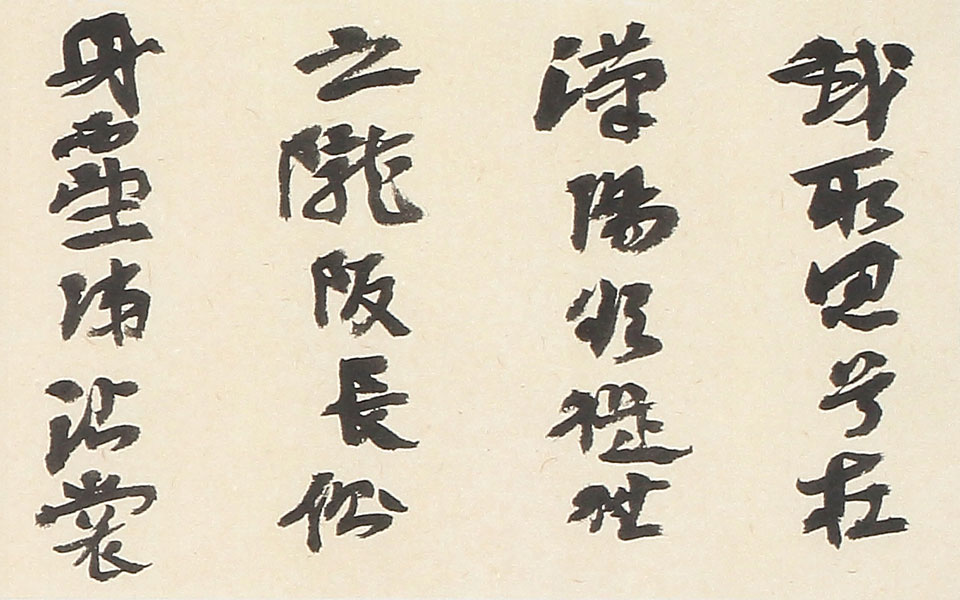 我所思兮在
漢陽欲往從
之隴阪長側
身西望涕沾裳